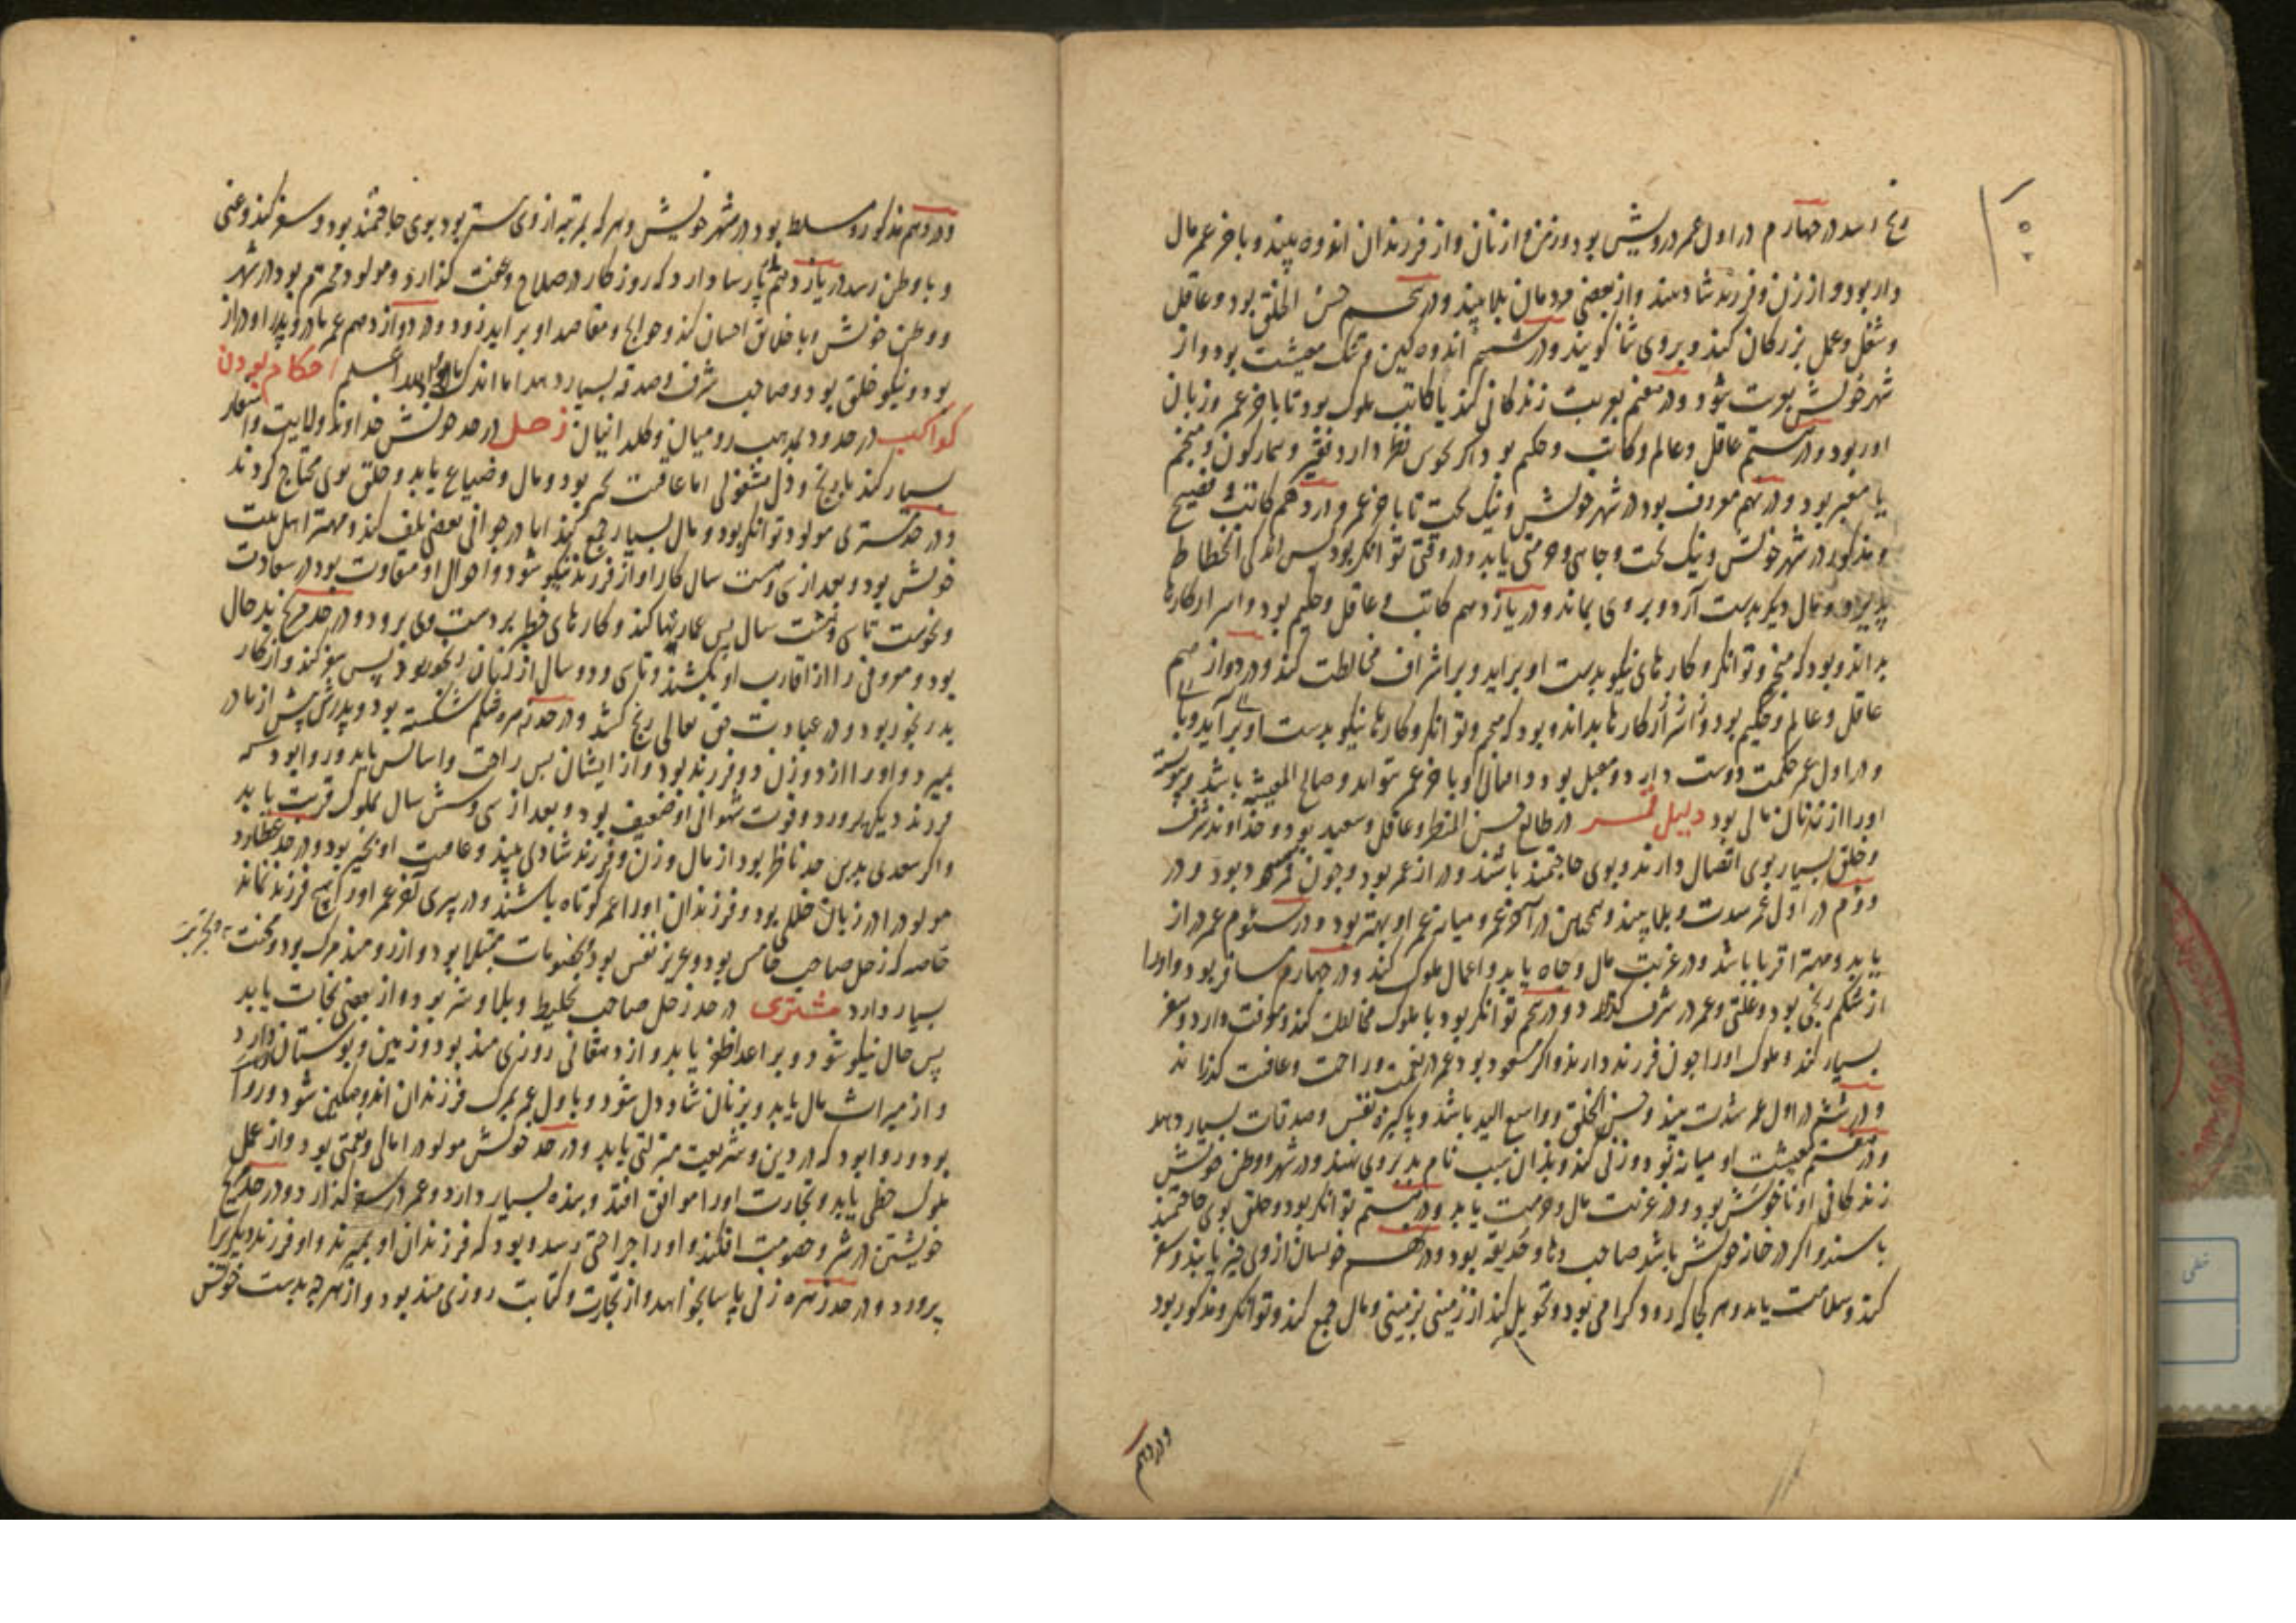 رنج رسد در چهارم در اول عمر درویش بود و رنج و از زنان و از فرزندان اندوه بیند و باخر عمر مال
دار بود و از زن و فرزند شادی بیند و از بعضی مردمان بلا بیند و در پنجم حسن الخلق بود و عاقل
و شغل و عمل بزرکان کند و بروی ثنا کویند و در ششم اندوه کین و تنک معیشت بود و از
شهر خویش بغربت شود و در هفتم بغربت زندکانی کند یا کاتب ملوک بود تا باخر عمر و زبان
اور بود و در هشتم عاقل و عالم و کاتب و حکیم بود اکر نحوس نظر دارد فقیر و بیمارکون و منجم
یا معبر بود و در نهم معروف بود در شهر خویش و نیک بخت تا باخر عمر و در دهم کاتب و فصیح
و مذکور در شهر خویش و نیک بخت و جاهی و حرمتی یابد و در وقتی توانکر بود پس اندکی انحطاط
پذیرد و مال دیکر بدست آرد و بروی بماند و در یازدهم کاتب و عاقل و حکیم بود و اسرار کارها
بداند و بود که منجم و توانکر و کارهای نیکو بدست او براید و با اشراف مخالطت کند و در دوازدهم
عاقل و عالم و حکیم بود و از اسرار کارها بداند و بود که منجم و توانکر و کارها نیکو بدست او برآید
و در اول عمر حکمت دوست دارد و مقبل بود و باخر عمر و صالح المعیشه باشد و پیوسته
او را از زنان مالی بود دلیل قمر در طالع حسن المنظر و عاقل و سعید بود و خداوند شرف
و خلق بسیار بوی اتصال دارند و بوی حاجتمند باشند و دراز عمر بود و چون قمر بود و در
دوم در اول عمر شدت و بلا بیند و همچنین در آخر عمر و میانه عمر او بهتر بود و در سیوم عمر دراز
یابد و مهتر اقربا باشد و در غربت مال و جاه یابد و اعمال ملوک کند و در چهارم مسافر بود و او را
از شکم رنجی بود و علتی و عمر در شرف کذارد و در پنجم توانکر بود با ملوک مخالطت کند و معرفت دارد و سفر
بسیار کند و ملوک او را چون فرزند دارند و اکر مسعود بود عمر در نعمت و راحت و عافیت کذراند
و در ششم در اول عمر شدت بیند و حسن الخلق و واسع الید باشد و پاکیزه نفس و صدقات بسیار دهد
و در هفتم معیشت او میانه بود و زنی کند و بدان سبب نام بد بروی نهند و در شهر و وطن خویش
زندکانی او ناخوش بود و در غربت مال و حرمت یابد و در هشتم توانکر بود و خلق بوی حاجتمند
باشند و اکر در خانه خویش باشد صاحب دها و خدیعه بود و در نهم خویشان از وی خیر یابند و سفر
کند و سلامت یابد و هر کجا که رود کرامی بود و تحویل کند از زمینی بزمینی و مال جمع کند و توانکر و مذکور بود
و در دهم
و در دهم مذکور و مسلط بود در شهر خویش و هر که بمرتبه از وی بیشتر بود بوی حاجتمند بود و سفر کند و غنی
و با وطن رسد در یازدهم پارسا دارد که روزکار در صلاح و عفت کذارد و مولود محترم بود در شهر
و وطن خویش و با خلایق احسان کند و حوایج و مقاصد او براید زود و در دوازدهم عمر مادر و پدر او دراز
بود و نیکو خلق بود و صاحب شرف و صدقه بسیار دهد اما اندک احکام بودن
کواکب در حدود بمذهب رومیان و کلدانیان زحل در حد خویش خداوند ولایت و اسفار
بسیار کند با رنج و دل مشغولی اما عاقبت بخیر بود و مال و ضیاع یابد و خلق بوی محتاج کردند
و در حد مشتری مولود توانکر بود و مال بسیار جمع کند اما در جوانی بعضی تلف کند و مهتر اهل بیت
خویش بود و بعد از سی و هشت سال کار او از فرزند نیکو شود و احوال او متفاوت بود در سعادت
و نحوست تا سی و هشت سال پس عمارتها کند و کارهای خطیر بر دست وی برود و در حد مریخ بد حال
بود و معروفی را از اقارب او بکشند و تا سی و دو سال از زنان رنجور بود پس سفر کند و از کار
بد رنجور بود و در عبادت حق تعالی رنج کشد و در حد زهره شکسته بود و پدرش پیش از مادر
بمیرد و او را از دو زن دو فرزند بود و از ایشان بس راحت و اسایش یابد و روا بود که
فرزند دیکری پرورد و قوت شهوانی او ضعیف بود و بعد از سی و شش سال بملوک قربت یابد
و اکر سعدی بدین حد ناظر بود از مال و زن و فرزند شادی بیند و عاقبت او بخیر بود و در حد عطارد
مولود را در زبان خللی بود و فرزندان او را عمر کوتاه باشد و در پیری آخر عمر او را هیچ فرزند نماند
خاصه که زحل صاحب خامس بود و عزیز نفس بود بخصومات مبتلا بود و ازرومند مرک بود و محنت
بسیار دارد مشتری در حد زحل صاحب تخلیط و بلا و شر بود و از بعضی نجات یابد
پس حال نیکو شود و بر اعدا ظفر یابد و از دهقانی روزی مند بود و زمین و بوستان دارد
و از میراث مال یابد و بزنان شاد دل شود و باول عمر بمرک فرزندان اندوهکین شود و روا
بود و روا بود که در دین و شریعت منزلتی یابد و در حد خویش مولود را مالی و نعمتی بود و از عمل
ملوک حظی یابد و تجارت او را موافق افتد و بنده بسیار دارد و عمر در سفر کذارد و در حد مریخ
خویشتن در شر و خصومت افکند و او را جراحتی رسد و بود که فرزندان او بمیرند و او فرزند دیکری را
پرورد و در حد زهره زنی پارسا بخواهد و از تجارت و کتابت روزی مند بود و از هر چه بدست خویش